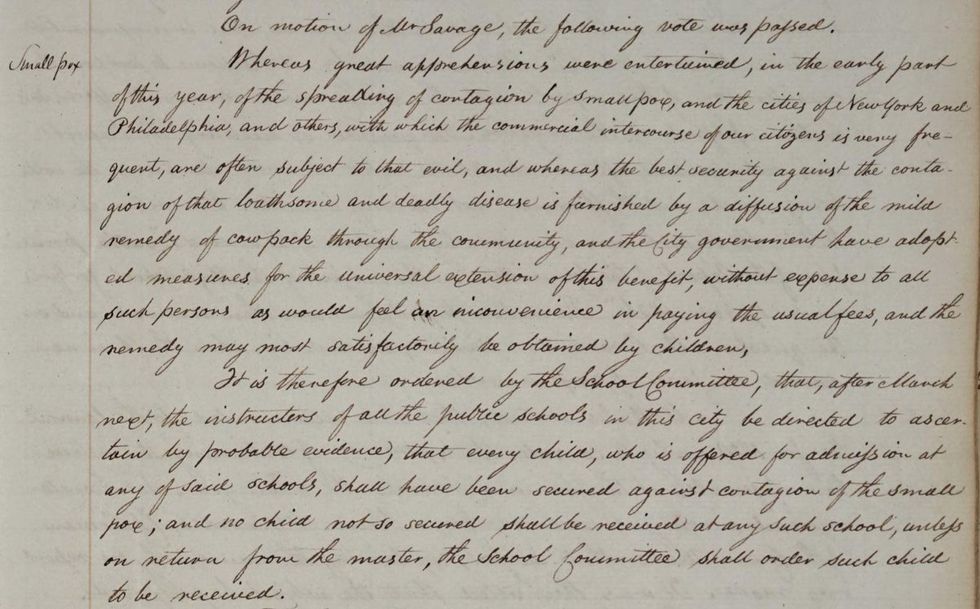 On motion of Mr Savage, the following vote was passed.
Small pox
Whereas great apprehensions were entertained, in the early part
of this year, of the spreading of contagion by small pox, and the cities of New York and
Philadelphia, and others, with which the commercial intercourse of our citizens is very fre-
quent, are often subject to that evil, and whereas the best security against the conta-
gion of that loathsome and deadly disease is furnished by a diffusion of the mild
remedy of cowpock through the community, and the City government have adopt-
ed measures for the universal extension of this benefit, without expense to all
such persons as would feel an inconvenience in paying the usual fees, and the
remedy may most satisfactorily be obtained by children,
It is therefore ordered by the School Committee, that, after March
next, the instructers of all the public schools in this city be directed to ascer-
tain by probable evidence, that every child, who is offered for admission at
any of said schools, shall have been secured against contagion of the small
pox; and no child not so secured shall be received at any such school, unless
on return from the master, the School Committee shall order such child
to be received.